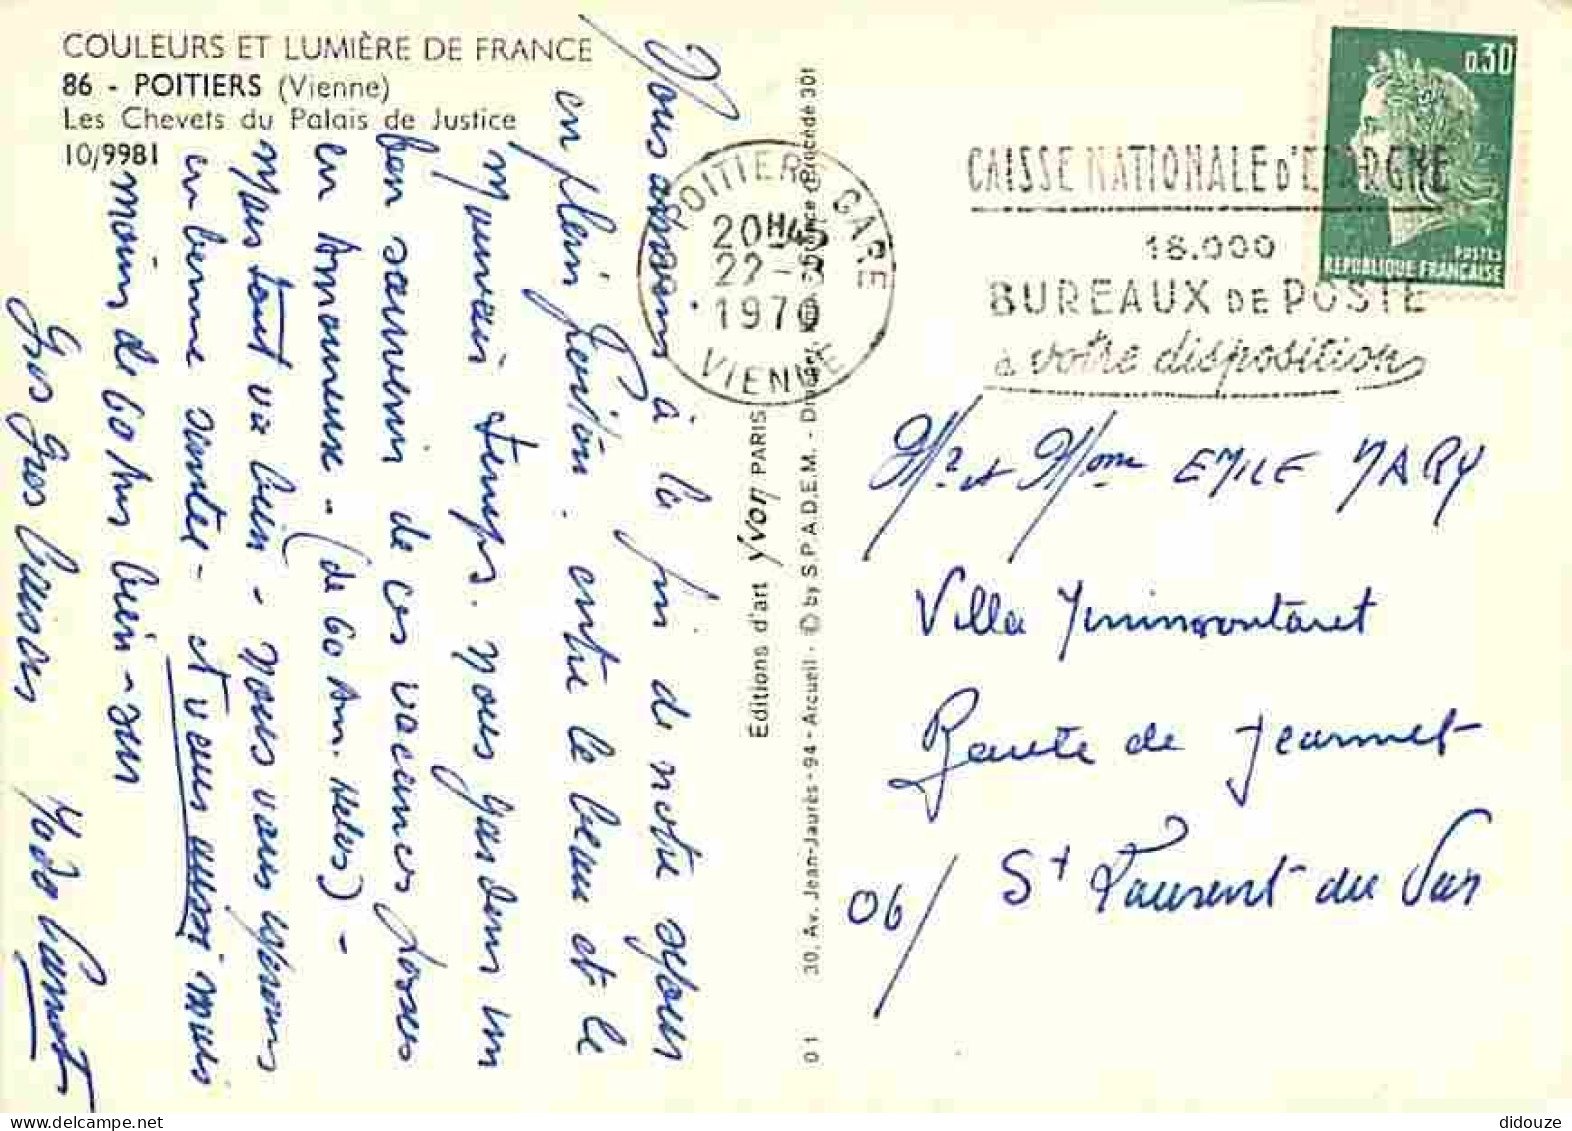 COULEURS ET LUMIÈRE DE FRANCE
86 - POITIERS (Vienne)
Les Chevets du Palais de Justice
10/9981
Nous arrivons à la fin de notre séjour
en plein Poitou. entre le beau et le
mauvais temps. Nous gardons un
bon souvenir de ces vacances
en Amoureuse - (de 60 Ans. )-
Mais tout va bien - Nous vous espérons
en bonne santée - et vous aussi mais
moins de 60 Ans bien-sur
Gros Gros Baisers
Editions d'art yvon PARIS
30, Av. Jean-Jaurès - 94 - Arcueil - © by S.P.A.D.E.M. - Procédé 301
01
POITIERS GARE
20H45
22-
1970
VIENNE
CAISSE NATIONALE D'EPARGNE
18.000
BUREAUX DE POSTE
à votre disposition
0,30
POSTES
REPUBLIQUE FRANCAISE
Mr et Mme EMILE MARY
Villa
Route de
St Laurent du Var
06/
didouze